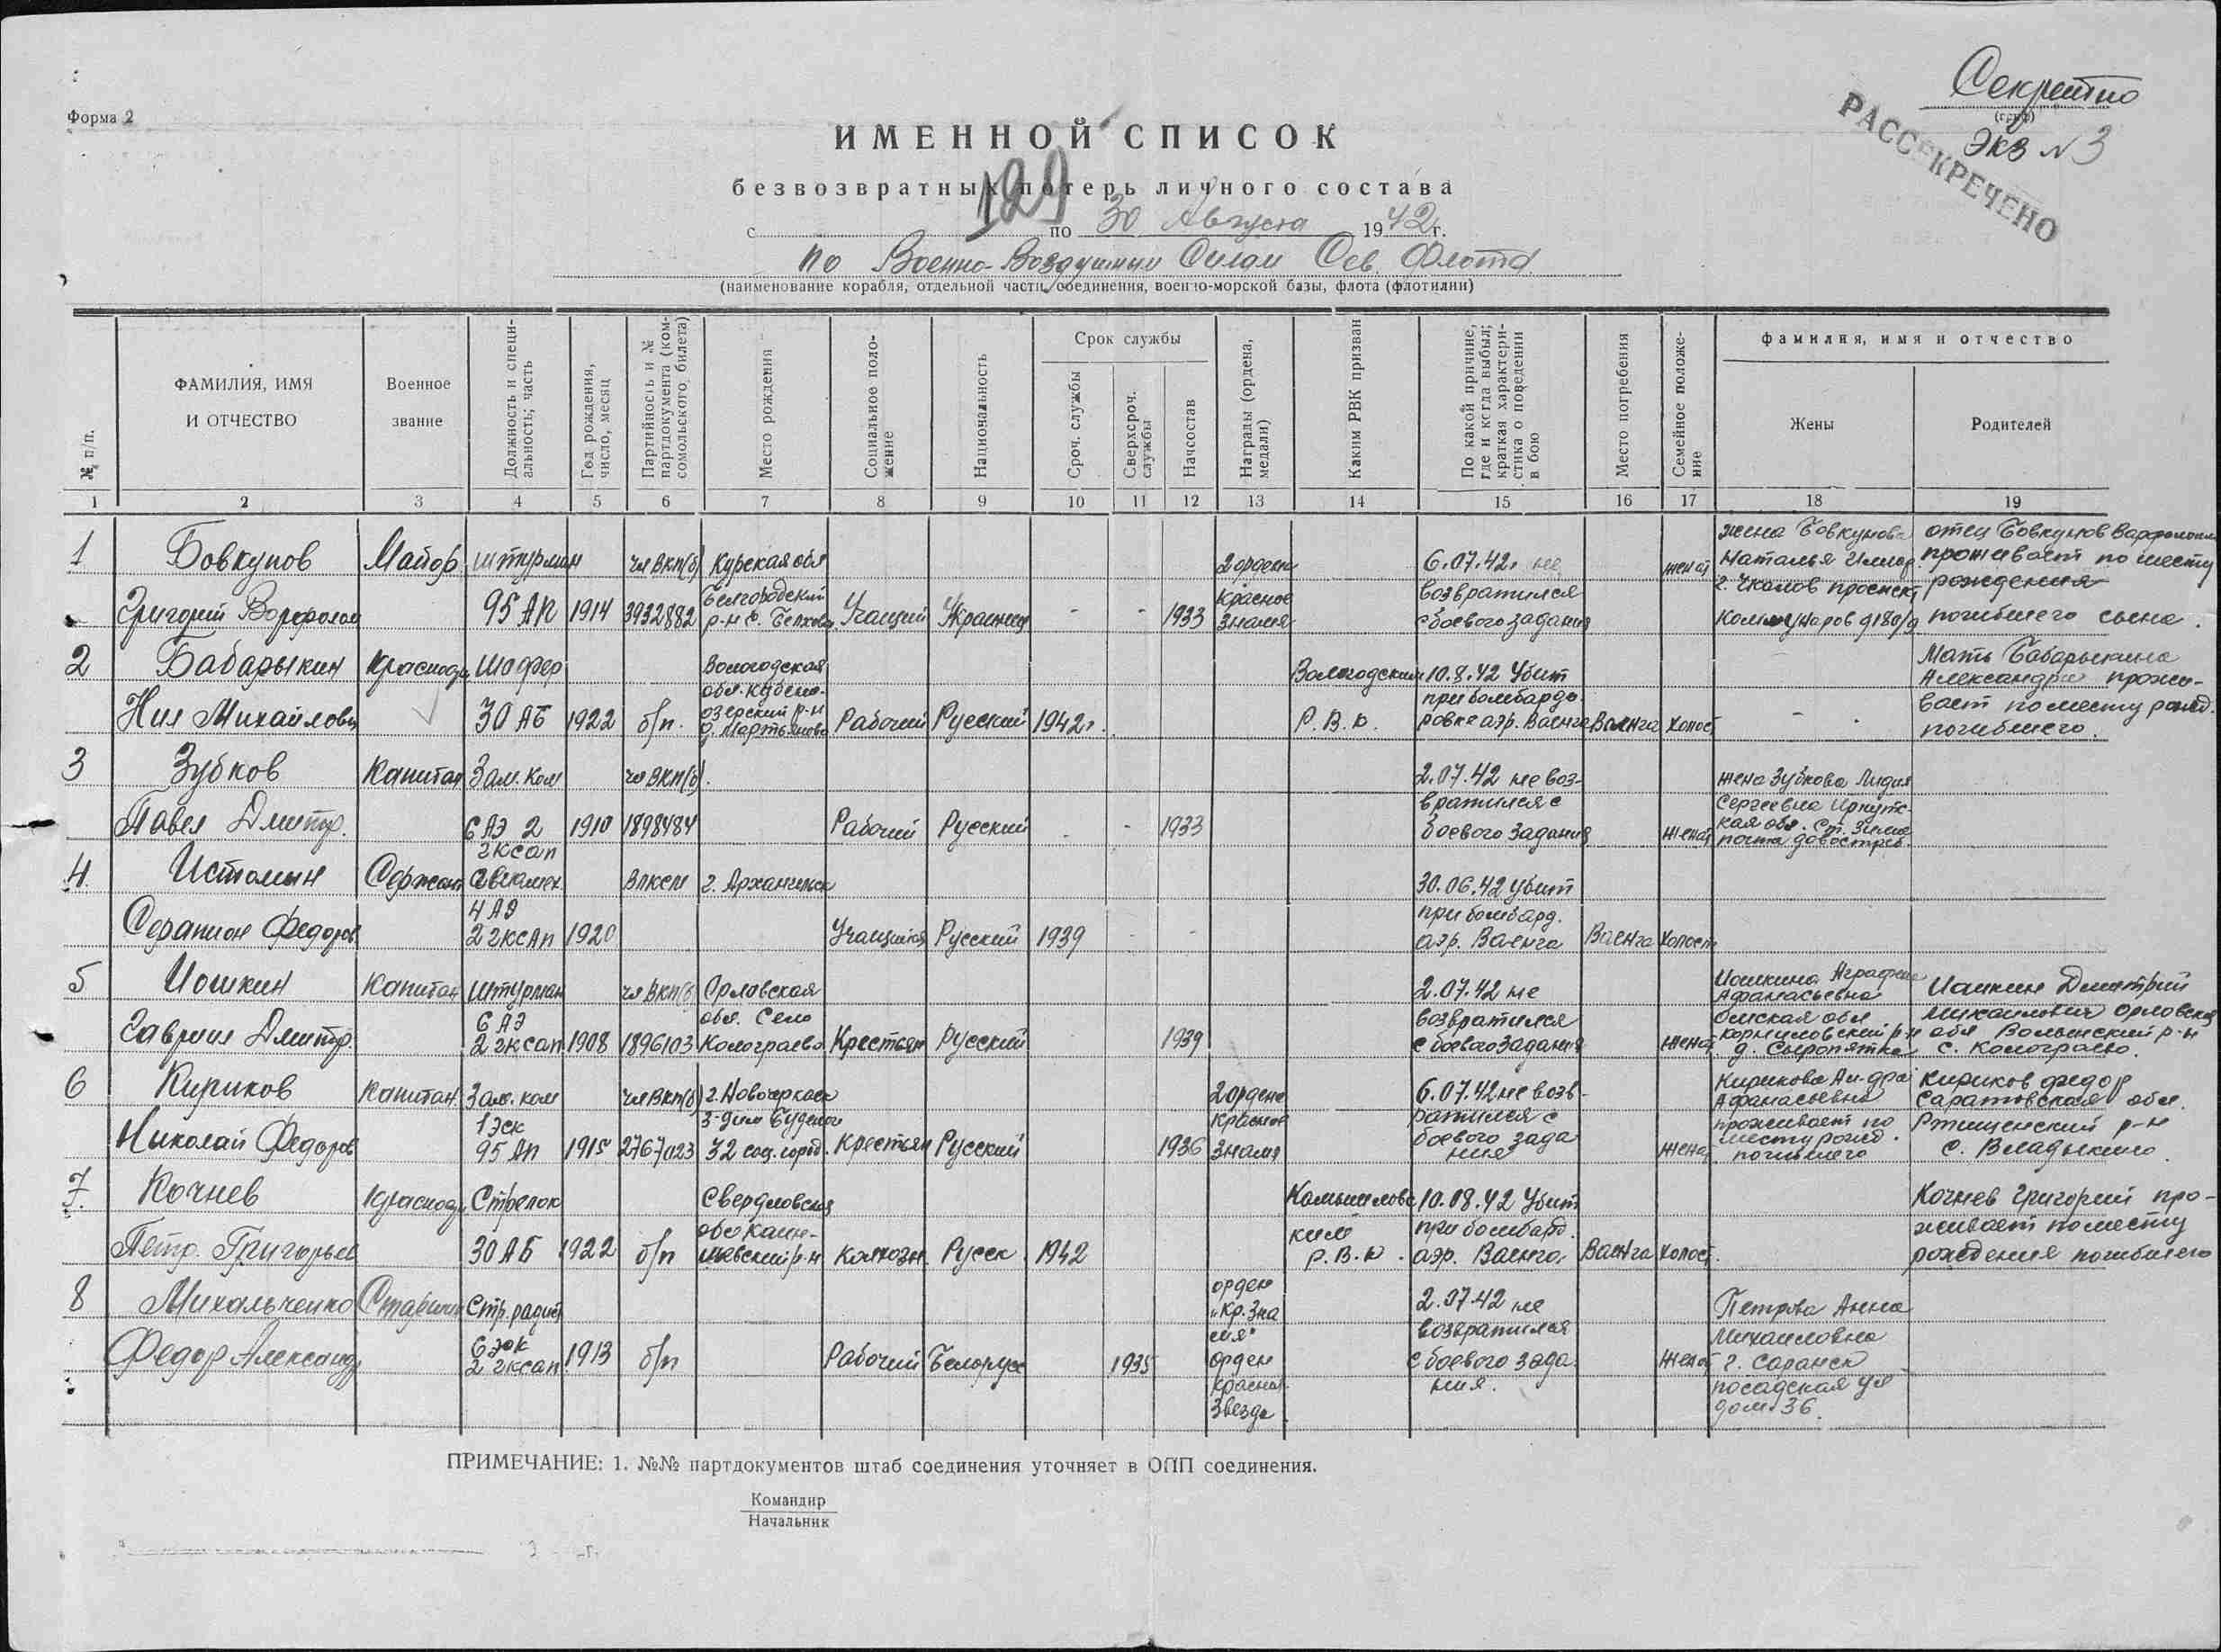 Форма 2
Секретно
(гриф)
Экз № 3
РАССЕКРЕЧЕНО
ИМЕННОЙ СПИСОК
безвозвратных потерь личного состава
129
с по 30 Августа 1942 г.
по Военно-Воздушным Силам Сев. Флота
(наименование корабля, отдельной части, соединения, военно-морской базы, флота (флотилии)
№ п/п.
ФАМИЛИЯ, ИМЯ
И ОТЧЕСТВО
Военное
звание
Должность и специ-
альность; часть
Год рождения,
число, месяц
Партийность и №
партдокумента (ком-
сомольского билета)
Место рождения
Социальное поло-
жение
Национальность
Срок службы
Сроч. службы
Сверхсроч.
службы
Начсостав
Награды (ордена,
медали)
Каким РВК призван
По какой причине,
где и когда выбыл;
краткая характери-
стика о поведении
в бою
Место погребения
Семейное положе-
ние
фамилия, имя и отчество
Жены
Родителей
1 2 3 4 5 6 7 8 9 10 11 12 13 14 15 16 17 18 19
1
Бовкунов
Григорий Варфолом
Майор
штурман
95 АП
1914
чл ВКП(б)
3932882
Курская обл
Белгородский
р-н с.
Учащий
Украинец
- -
1933
2 ордена
Красное
Знамя
6.07.42г не
возвратился
с боевого задания
женат
жена Бовкунова
Наталья
г. Чкалов проспект
Коммунаров д 180/9
отец Бовкунов Варфоломей
проживает по месту
рождения
погибшего сына.
2
Бабарыкин
Нил Михайлович
Красноар
Шофер
30 АБ
1922
б/п.
Вологодская
обл. Кубено-
озерский р-н
д. Мартьяново
Рабочий
Русский
1942г.
Вологодским
Р.В.К.
10.8.42 Убит
при бомбарди
ровке аэр. Ваенга
Ваенга
холост
- .
Мать Бабарыкина
Александра прожи-
вает по месту рожд.
погибшего.
3
Зубков
Павел Дмитр.
Капитан
Зам. Ком
6 АЭ 2
гксап
1910
чл ВКП(б).
1898484
Рабочий
Русский
- -
1933
2.07.42 не воз-
вратился с
боевого задания
женат
жена Зубкова Лидия
Сергеевна Иркутс-
кая обл. Ст. Зима
почта довостреб.
4.
Истомин
Серапион Федоров
Сержант
авиамех.
4 АЭ
2 гксап
1920
ВЛКСМ
г. Архангельск
Учащийся
Русский
1939
- -
30.06.42 убит
при бомбард.
аэр. Ваенга
Ваенга
холост
5
Иошкин
Гавриил Дмитр.
Капитан
штурман
6 АЭ
2 гксап
1908
чл ВКП(б)
1896103
Орловская
обл. Село
Кологриево
Крестьян
Русский
1939
2.07.42 не
возвратился
с боевого задания
женат
Иошкина Аграфена
Афанасьевна
Омская обл
Корниловский р-н
д. Сыропятка
Иошкин Дмитрий
Михайлович Орловская
обл Волынский р-н
с. Кологриево.
6
Кириков
Николай Федоров
Капитан
Зам. ком
1 Эск
95 Ап
1915
чл ВКП(б)
2767023
г. Новочеркасск
З-д им Буденого
32 соц. город.
Крестьян
Русский
1936
2 ордена
Красное
Знамя
6.07.42 не возв-
ратился с
боевого зада
ния
женат
Кирикова Ал-дра
Афанасьевна
проживает по
месту рожд.
погибшего
Кириков Федор
Саратовская обл.
Ртищенский р-н
с. Владыкино.
7.
Кочнев
Петр. Григорьев
Красноар
Стрелок
30 АБ
1922
б/п
Свердловская
обл Камы-
шевский р-н
Колхозн.
Русск
1942
Камышловс
ким
Р.В.К.
10.08.42 Убит
при бомбард.
аэр. Ваенга
Ваенга
холост.
Кочнев Григорий про-
живает по месту
рождения погибшего
8
Михальченко
Федор Александр
Старшина
Стр. радист
6 эск
2 гксап
1913
б/п
Рабочий
Белорусс
1935
орден
"Кр. Зна
мя"
орден
Красная
Звезда.
2.07.42 не
возвратился
с боевого зада
ния.
женат
Петрова Анна
Михайловна
г. Саранск
посадская ул
дом. 36.
ПРИМЕЧАНИЕ: 1. №№ партдокументов штаб соединения уточняет в ОПП соединения.
Командир
Начальник